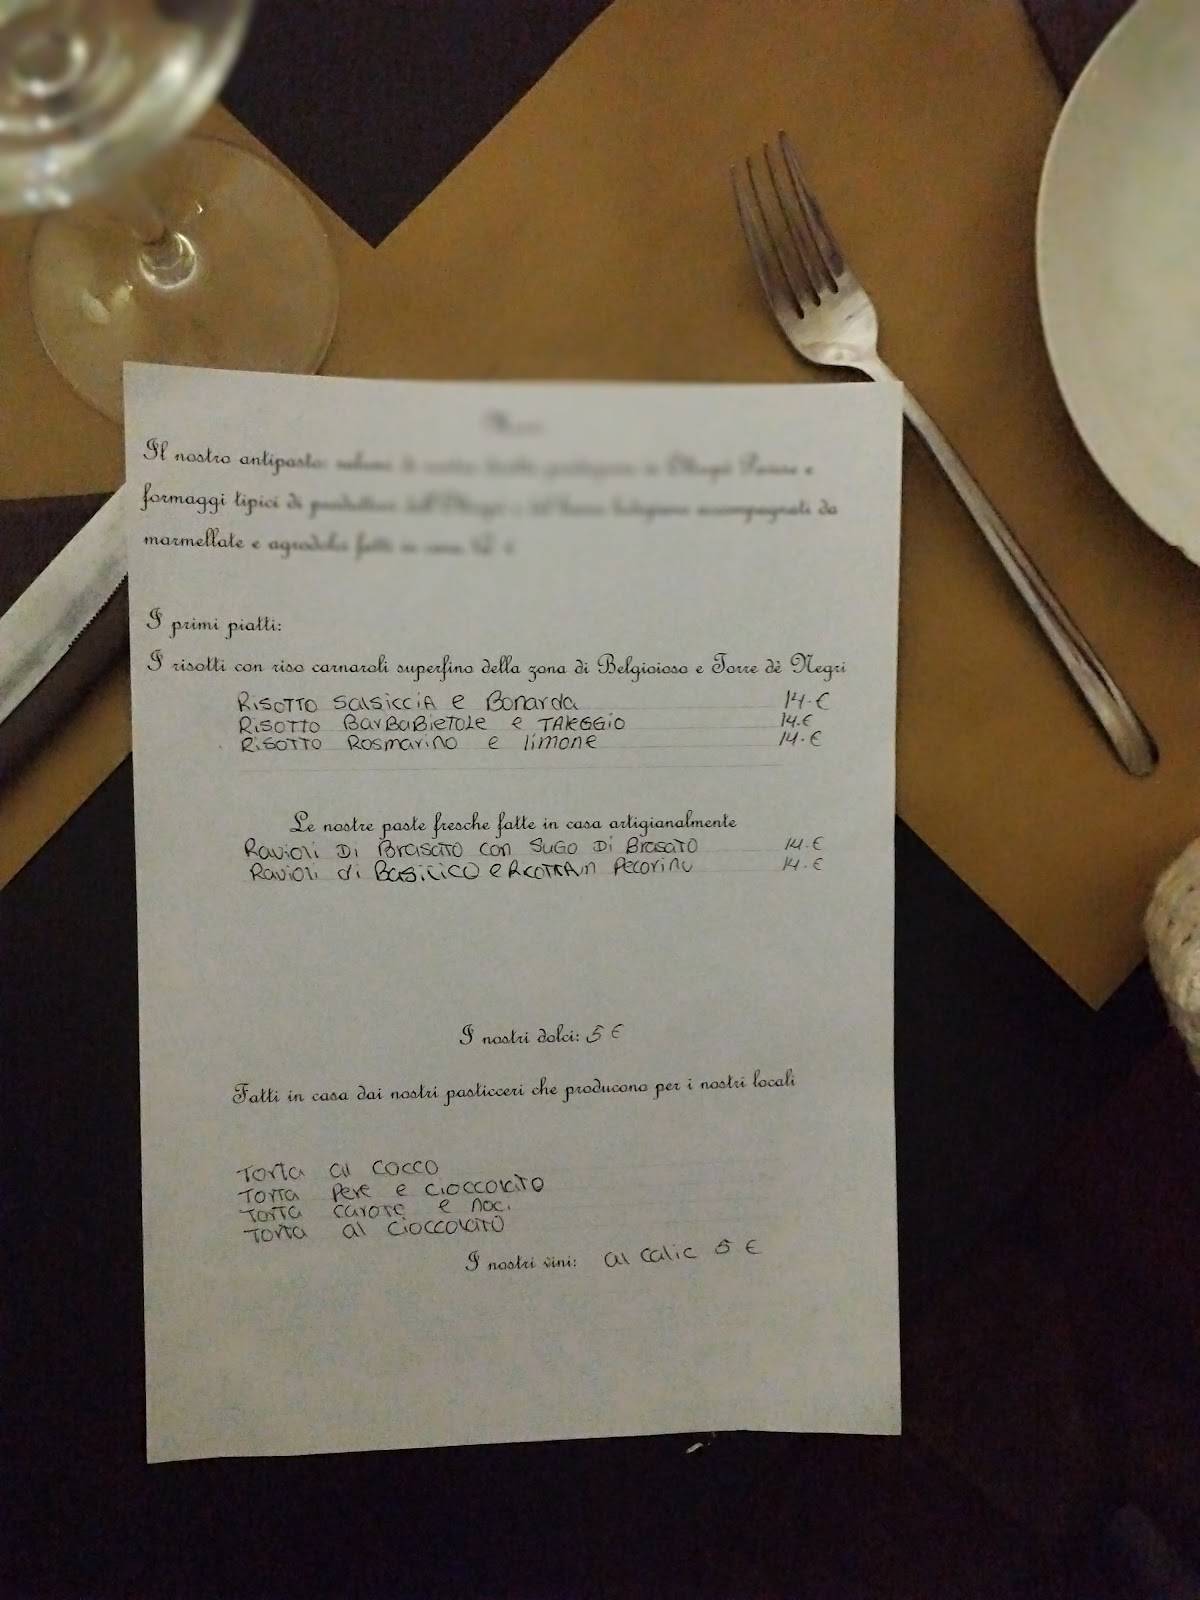 Il nostro antipasto:
formaggi tipici di accompagnati da
marmellate e agrodolci fatti in casa
I primi piatti:
I risotti con riso carnaroli superfino della zona di Belgioioso e Torre dè Negri
RISOTTO SalSiCCIA e BonarDa 14.€
RISOTTO BarBaBieTOLe e TALEGGIO 14.€
RISOTTO Rosmarino e limone 14.€
Le nostre paste fresche fatte in casa artigianalmente
Ravioli Di Brasato con SUGO Di Brasato 14.€
Ravioli di BasiliCO e RICOTTA in Pecorino 14.€
I nostri dolci: 5 €
Fatti in casa dai nostri pasticceri che producono per i nostri locali
Torta al COCCO
Torta Pere e CIOCCOLATO
Torta carote e noci
Torta al CIOCCOLATO
I nostri vini: al calic 5 €